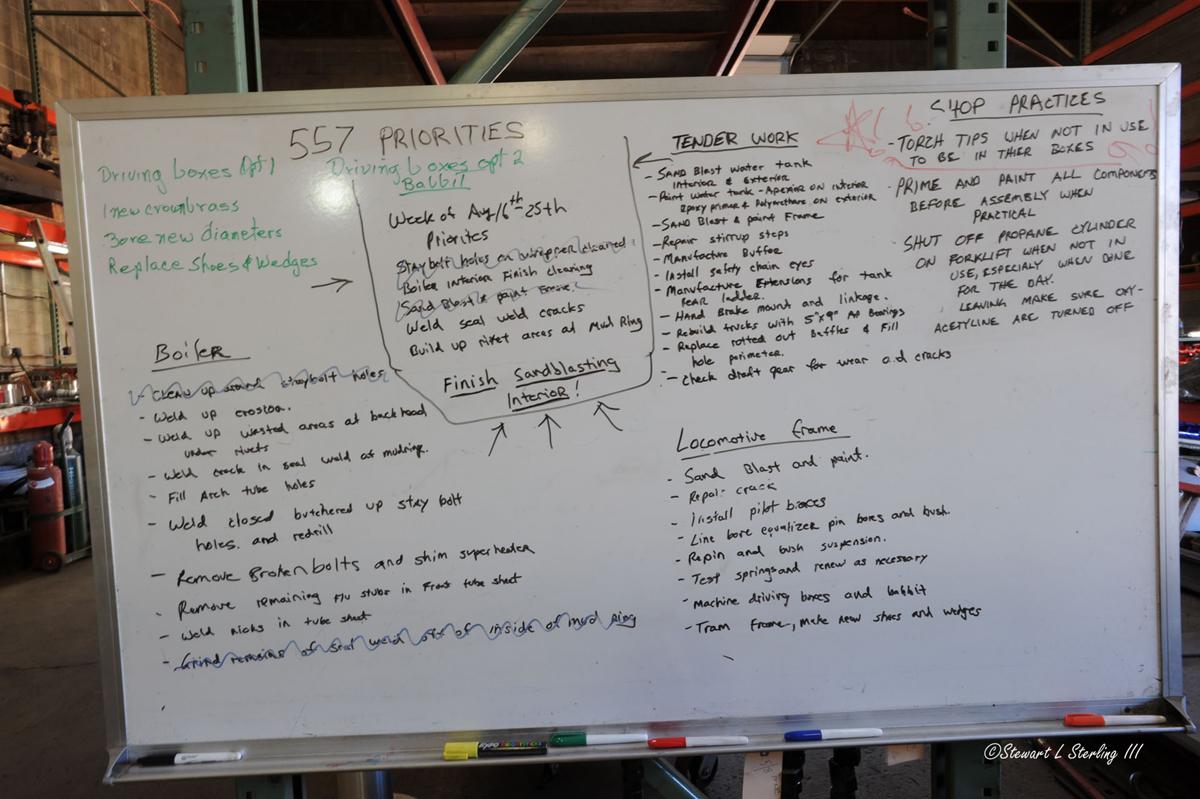 557 PRIORITIES
Driving boxes opt 1
1 new crownbrass
Bore new diameters
Replace Shoes & Wedges
Driving boxes opt 2
Babbit
Week of Aug 16th 25th
Priorites
Staybolt holes on wrapper cleaned
Boiler interior Finish cleaning
Sand Blast & paint Frame
Weld seal weld cracks
Build up rivet areas at Mud Ring
Finish Sandblasting
Interior!
Boiler
- Clean up around staybolt holes
- Weld up erosion.
- Weld up wasted areas at backhead
under rivets
- Weld crack in seal weld at mudring.
- Fill Arch tube holes
- Weld closed butchered up stay bolt
holes. and redrill
- Remove Broken bolts and shim superheater
- Remove remaining Flu stubs in Front tube sheet
- Weld nicks in tube sheet
- Grind remains of seal weld off of inside of mud Ring
TENDER WORK
- SAND Blast water tank
interior & exterior
- Paint water tank - Apexior on interior
Epoxy primer & Polyurethane on exterior
- SAND Blast & paint Frame
- Repair stirrup steps
- Manufacture Buffer
- Install safety chain eyes
- Manufacture Extensions for tank
rear ladder.
- Hand Brake mount and linkage.
- Rebuild trucks with 5"x9" AP Bearings
- Replace rotted out Baffles & Fill
hole perimeter.
- Check draft gear for wear and cracks
Locomotive Frame
- Sand Blast and paint.
- Repair crack
- Install pilot braces
- Line bore equalizer pin bores and bush.
- Repin and bush suspension.
- Test springs and renew as necessary
- Machine driving boxes and babbit
- Tram Frame, make new shoes and wedges
SHOP PRACTICES
- TORCH TIPS WHEN NOT IN USE
TO BE IN THIER BOXES
- PRIME AND PAINT ALL COMPONENTS
BEFORE ASSEMBLY WHEN
PRACTICAL
SHUT OFF PROPANE CYLINDER
ON FORKLIFT WHEN NOT IN
USE, ESPECIALY WHEN DONE
FOR THE DAY.
LEAVING MAKE SURE OXY-
ACETYLINE ARE TURNED OFF
EXPO
©Stewart L Sterling III